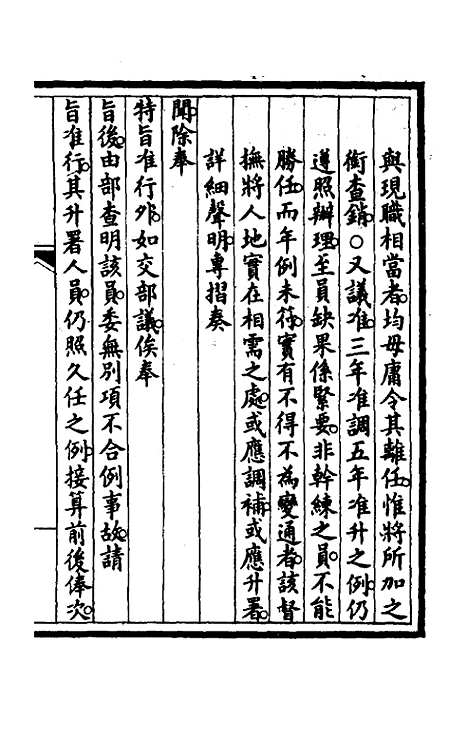 與現職相當者。均毋庸令其離任。惟將所加之
銜查銷。○又議准。三年准調五年准升之例。仍
遵照辦理。至員缺果係緊要。非幹練之員。不能
勝任。而年例未符。實有不得不為變通者。該督
撫將人地實在相需之處。或應調補。或應升署。
詳細聲明。專摺奏
聞。除奉
特旨准行外。如交部議。俟奉
旨後。由部查明該員委無別項不合例事故。請
旨准行。其升署人員。仍照久任之例。接算前後俸次。